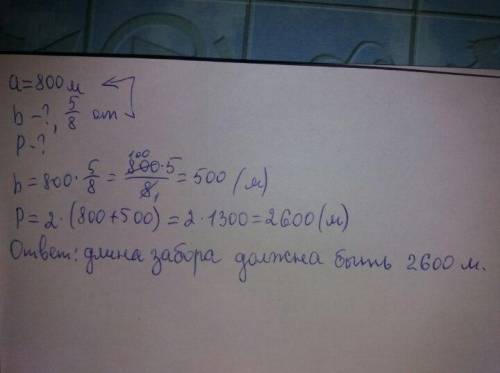 a=800м
b-?, 5/8 от
P-?
b=800·5/8=800·5/8=500 (м)
P=2·(800+500)=2·1300=2600(м)
Ответ: длина забора должна быть 2600 м.